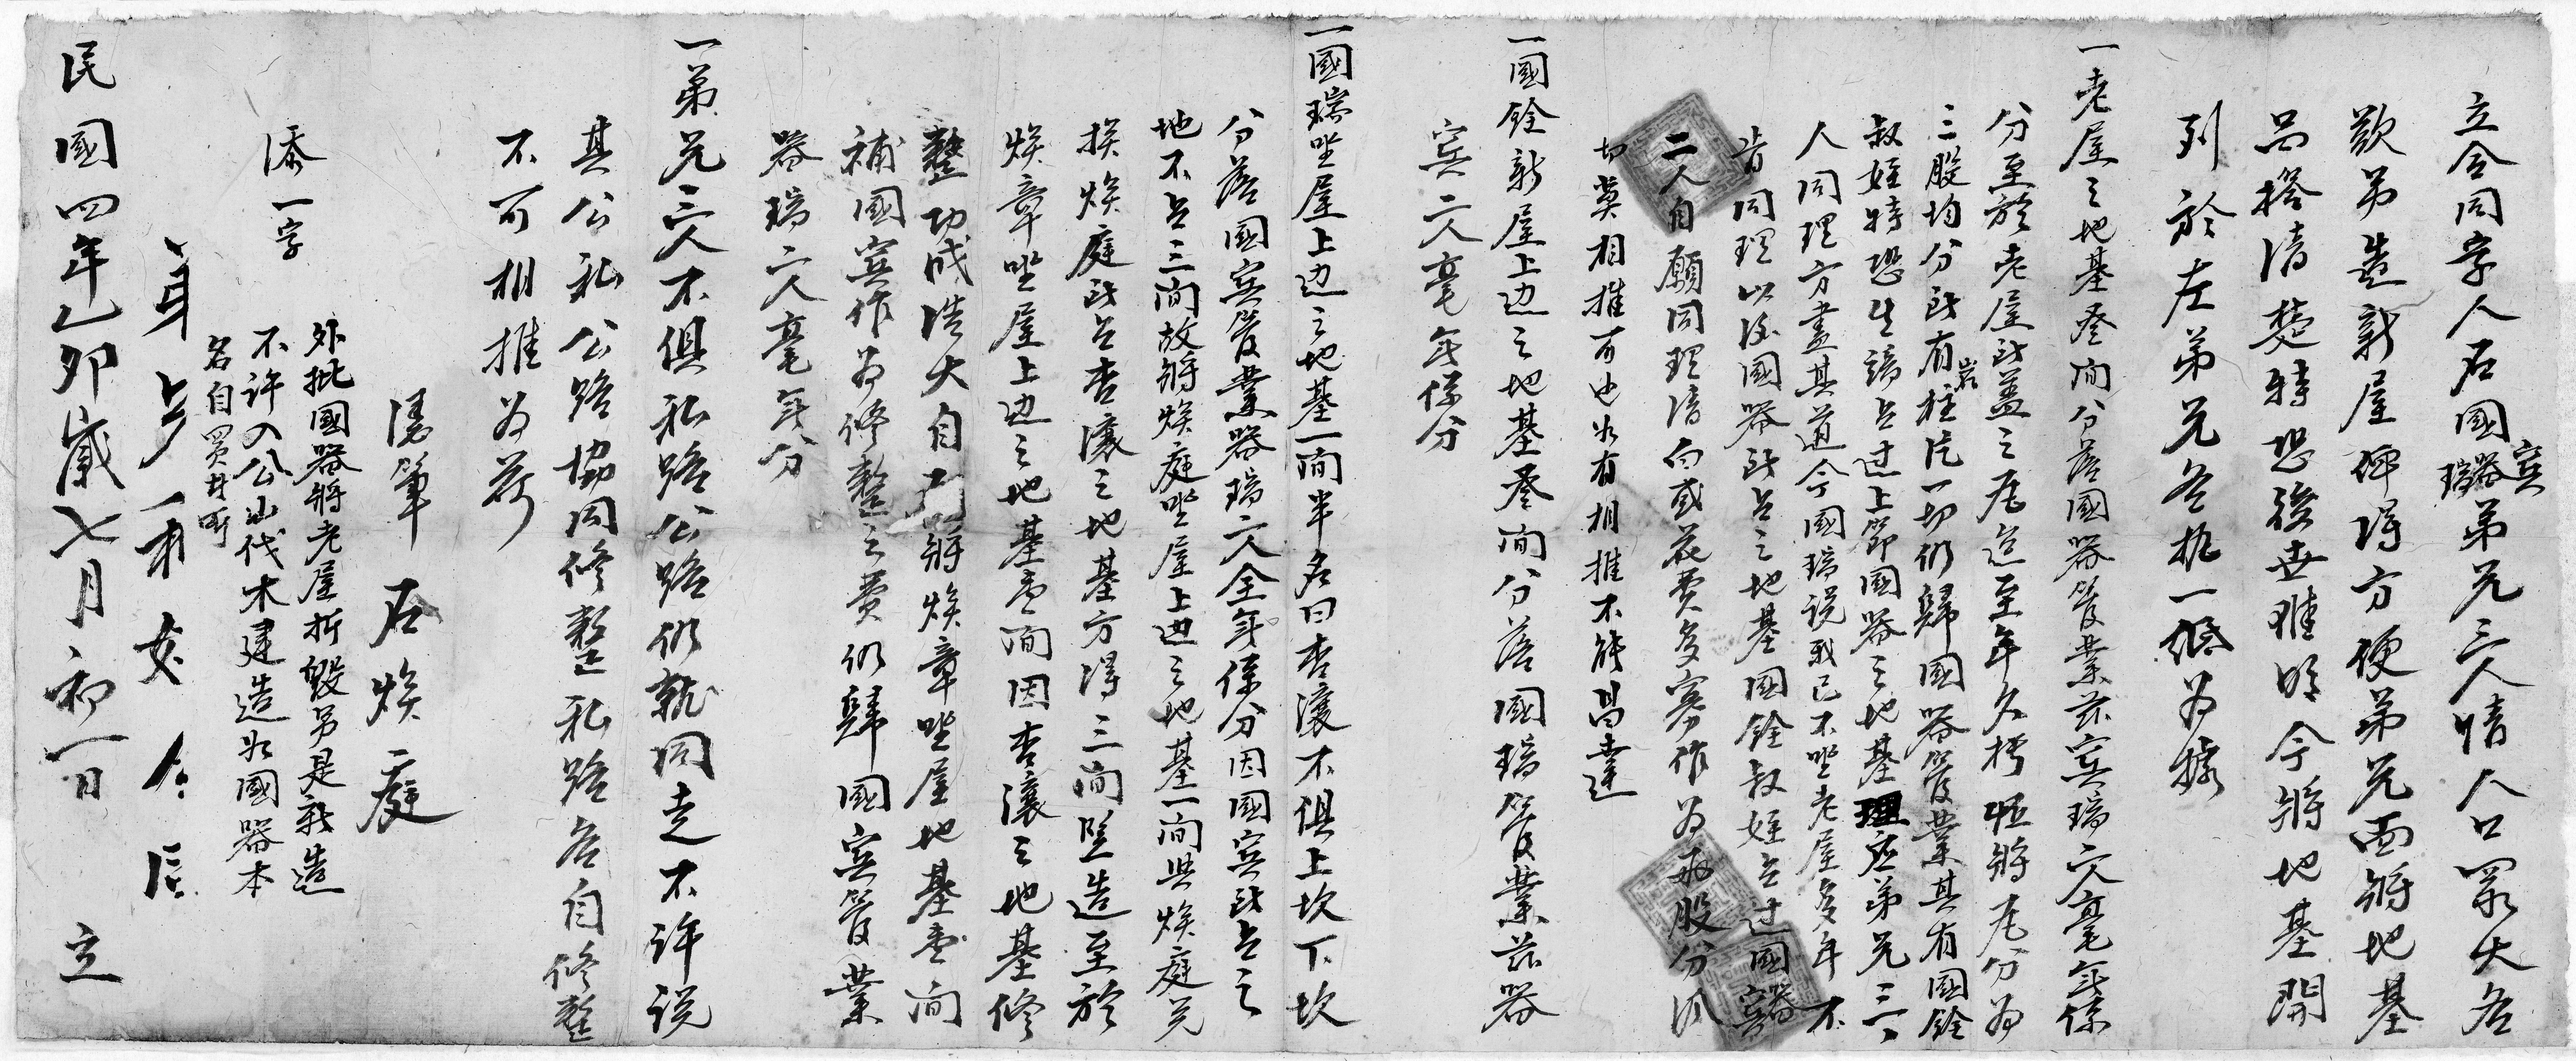 立合同字人石國賓器瑞弟兄三人情人口眾大各
欲另造新屋俾得方便弟兄面將地基
品搭清楚特恐後世難明今將地基開
列於左弟兄各执一紙为據
一老屋之地基叄间分落國器管業茲賓瑞六人毫無係
分至於老屋所盖之瓦迄至年久朽坯將瓦分为
三股均分所有岩柱片一切仍歸國器管業其有國銓
叔姪特恐生端占过上節國器之地基理应弟兄三
人同理方盡其道今國瑞说我已不坐老屋多年不
肯同理以後國器所占之地基國銓叔姪占过國器賓
二人自願同理清白或花費多寡作为兩股分派
切莫相推可也如有相推不能昌達
一國銓新屋上边之地基叄间分落國瑞管業茲器
賓二人毫無係分
一國瑞坐屋上边之地基一间半名曰杏瀼不俱上坎下坎
分落國賓管業器瑞二人全無係分因國賓所占之
地不足三间故將焕庭坐屋上边之地基一间與焕庭兑
挨焕庭所占杏瀼之地基方得三间竖造至於
焕章坐屋上边之地基壹间因杏瀼之地基修
整功成浩大自 將焕章坐屋地基壹间
補國賓作为修整之費仍肆國賓管業
器瑞二人毫無分
一弟兄三人不俱私路公路仍就同走不许说
其公私公路協同修整私路各自修整
不可相推为荷
憑筆 石焕庭
外批國器將老屋折毁另是新造
不许入公山伐木建造如國器本
名自買
添一字
民國四年乙卯歲七月初一日 立